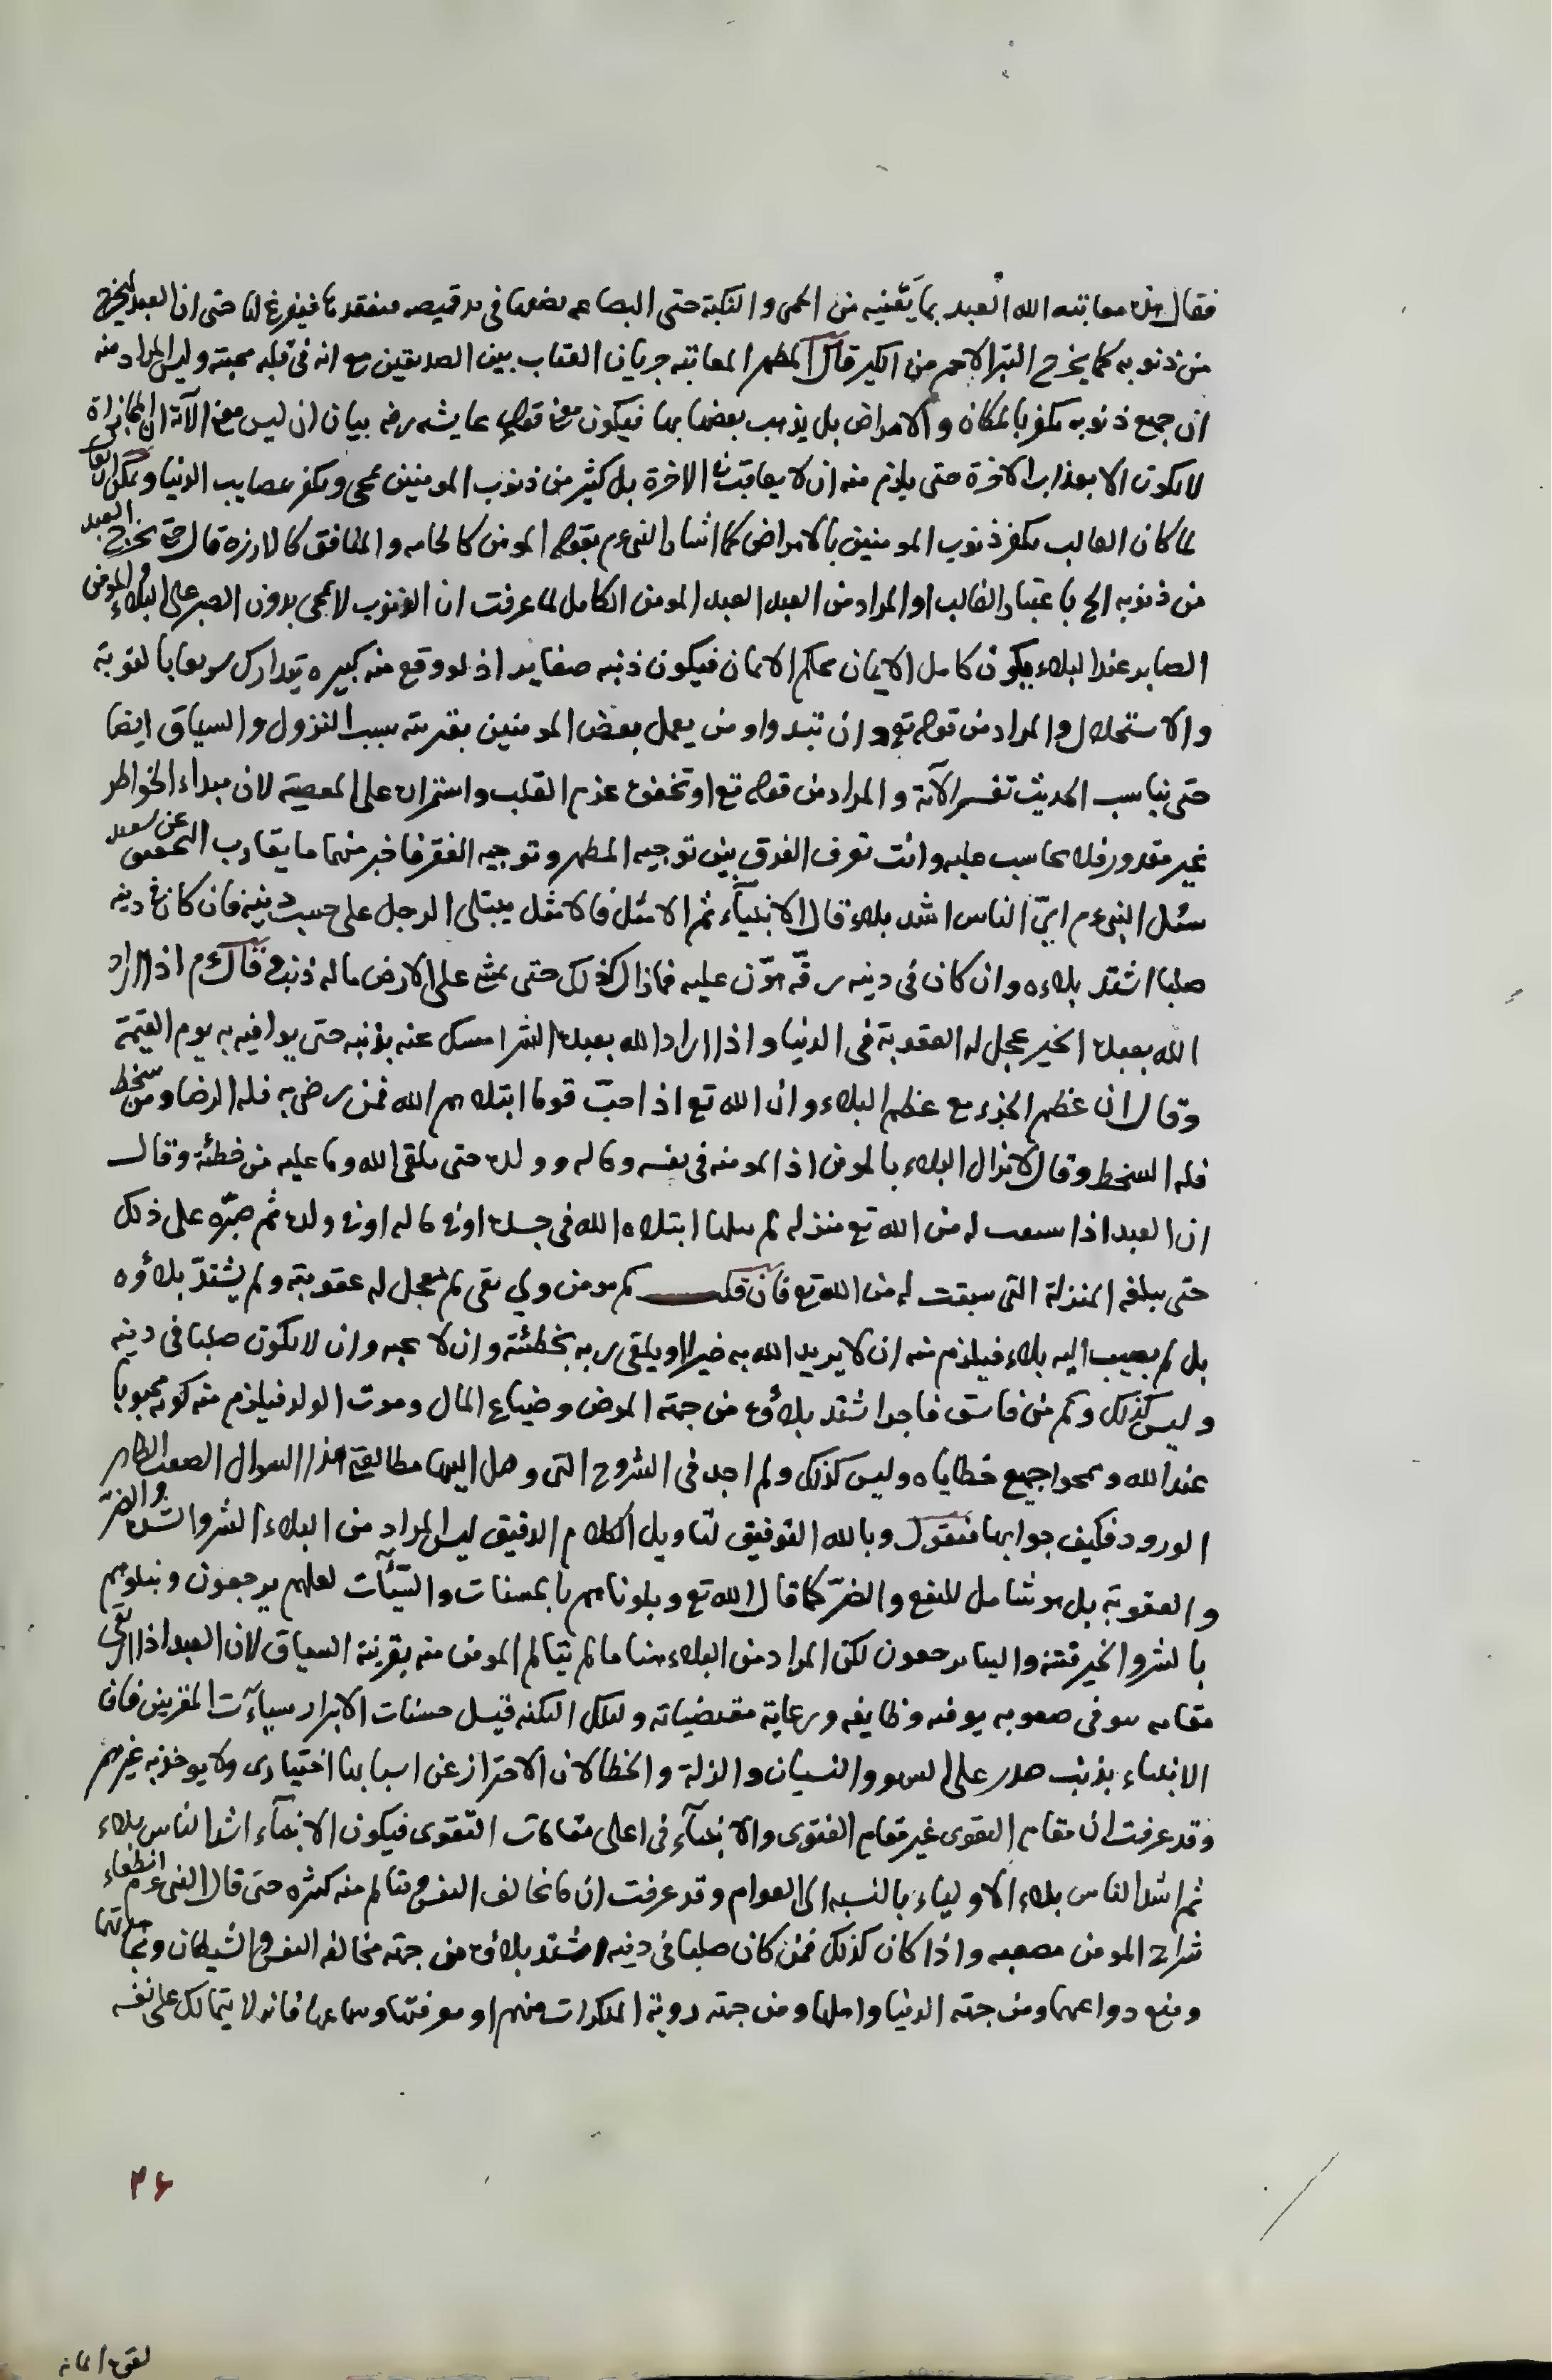 فقال هذه معاتبته الله العبد بما يقنيه من الحمى والنكبة حتى البضاعة يضعها في يد قميصه فيفقدها فيفزع لها حتى ان العبد ليخرج
من ذنوبه كما يخرج التبر الاحمر من الكير قال المظهر المعاتبه جريان العتاب بين الصديقين مع انه في قلبه محبته وليس المراد منه
ان جميع ذنوبه يكفر بالمكاره والامراض بل يذهب بعضها بها فيكون معنى قوله عايشه رضه بيان ان ليس معنى الآية ان المجازاة
لا يكون الا بعذاب الاخرة حتى يلزم منه ان لا يعاقب في الاخرة بل كثير من ذنوب المومنين يمحى ويكفر بمصايب الدنيا ويمكن ان يقال
لما كان الغالب يكفر ذنوب المومنين بالامراض كما اشار النبى عم بقوله المومن كالخامه والمنافق كالارزه قال حتى يخرج العبد
من ذنوبه الخ باعتبار الغالب او المراد من العبد العبد المومن الكامل لما عرفت ان الذنوب لا يمحى بدون الصبر على البلاء والمومن
الصابر عند البلاء يكون كامل الايمان محكم الايمان فيكون ذنبه صغاير اذ لو وقع منه كبيره يتدارك سريعا بالتوبة
والاستحلال والمراد من قوله تع وان تبدوا ومن يعمل بعض المومنين بقرينة سبب النزول والسياق ايضا
حتى يناسب الحديث تفسير الآية والمراد من قوله تع او تخفوه عزم القلب واستمراره على المعصية لان مبداء الخواطر
غير مقدور فلا يحاسب عليه وانت تعرف الفرق بين توجيه المظهر وتوجيه الفقر فاختر منهما ما يقارب التحقيق عن سعد
سئل النبى عم اىّ الناس اشد بلاء قال الانبيآء ثم الامثل فالامثل يبتلى الرجل على حسب دينه فان كان في دينه
صلبا اشتد بلاءه وان كان فى دينه رقّة هوّن عليه فما زال كذلك حتى يمشى على الارض ماله ذنب وقال عم اذا اراد
الله بعبده الخير عجل له العقوبة فى الدنيا واذا اراد الله بعبده الشر امسك عنه بذنبه حتى يوافيه به يوم القيمة
وقال ان عظم الجزء مع عظم البلاء وان الله تع اذا احبّ قوما ابتلاهم الله فمن رضى به فله الرضا ومن سخط
فله السخط وقال لا يزال البلاء بالمومن او المومنه فى نفسه وماله وولده حتى يلقى الله وما عليه من خطئة وقال
ان العبد اذا سبقت له من الله تع منزله لم يبلغها ابتلاه الله فى جسده او فى ماله او فى ولده ثم صبّره على ذلك
حتى يبلغه المنزلة التى سبقت له من الله تع فان قلت كم مومن ولي تقى لم يعجل له عقوبته ولم يشتدّ بلاؤه
بل لم يصيب اليه بلاء فيلزم منه ان لا يريد الله به خيرا ويلقى ربه بخطئته وان لا يحبه وان لا يكون صلبا فى دينه
وليس كذلك وكم من فاسق فاجر اشتد بلاؤه من جهة المرض وضياع المال وموت الولد فيلزم منه كونه محبوبا
عند الله ويمحوا جميع خطاياه وليس كذلك ولم اجد فى الشروح التى وصل اليها مطالعتى هذا السوال الصعب الظاهر
الورود فكيف جوابها فنقول وبالله التوفيق لتاويل الكلام الدقيق ليس المراد من البلاء الشر والشدة والضرّ
والعقوبة بل هو شامل للنفع والضرّ كما قال الله تع وبلوناهم بالحسنات والسّيّآت لعلهم يرجعون ونبلوهم
بالشر والخير فتنه والينا يرجعون لكن المراد من البلاء هنا ما لم يتالم المومن منه بقرينة السياق لان العبد اذا ارتقى
مقامه هو فى صعوبه يوفيه وظايفه ورعاية مقتضياته ولتلك النكته قيل حسنات الابرار سيآت المقربين فان
الانبياء بذنب صدر على السهو والنسيان والزلة والخطا لان الاحتراز عن اسبابها اختيارى ولا يوخذ به غيرهم
وقد عرفت ان مقام التقوى غير مقام الفتوى والانبيآء فى اعلى مقامات التقوى فيكون الانبيآء اشد الناس بلاء
ثم اشد الناس بلاء الاولياء بالنسبه الى العوام وقد عرفت ان ما يخالف النفس يتالم منه كثيره حتى قال النبى عم انطفاء
سراج المومن مصيبه واذا كان كذلك فمن كان صلبا فى دينه اشتد بلاؤه من جهته مخالفه النفس والشيطان ومجاهدتها
ومنع دواعيها ومن جهته الدنيا واهلها ومن جهته روية المنكرات منهم او معرفتها وسماعها فانه لا يتمالك على نفسه
۳۶